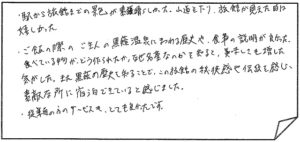 ・駅から旅館までの景色が素晴しかった。山道を下り、旅館が見えた時に
嬉しかった。
・ご飯の際の ご主人の黒薙温泉にまつわる歴史や、食事の説明が良かった。
食べている物が、どう作られたか、なぜ名産なのかを知ると、美味しさも増した
気がした。また黒薙の歴史も知ることで、この旅館の 秘境感や伝統を感じ、
素敵な所に宿泊できていると感じました。
・従業員の方のサービスも、とても良かったです。